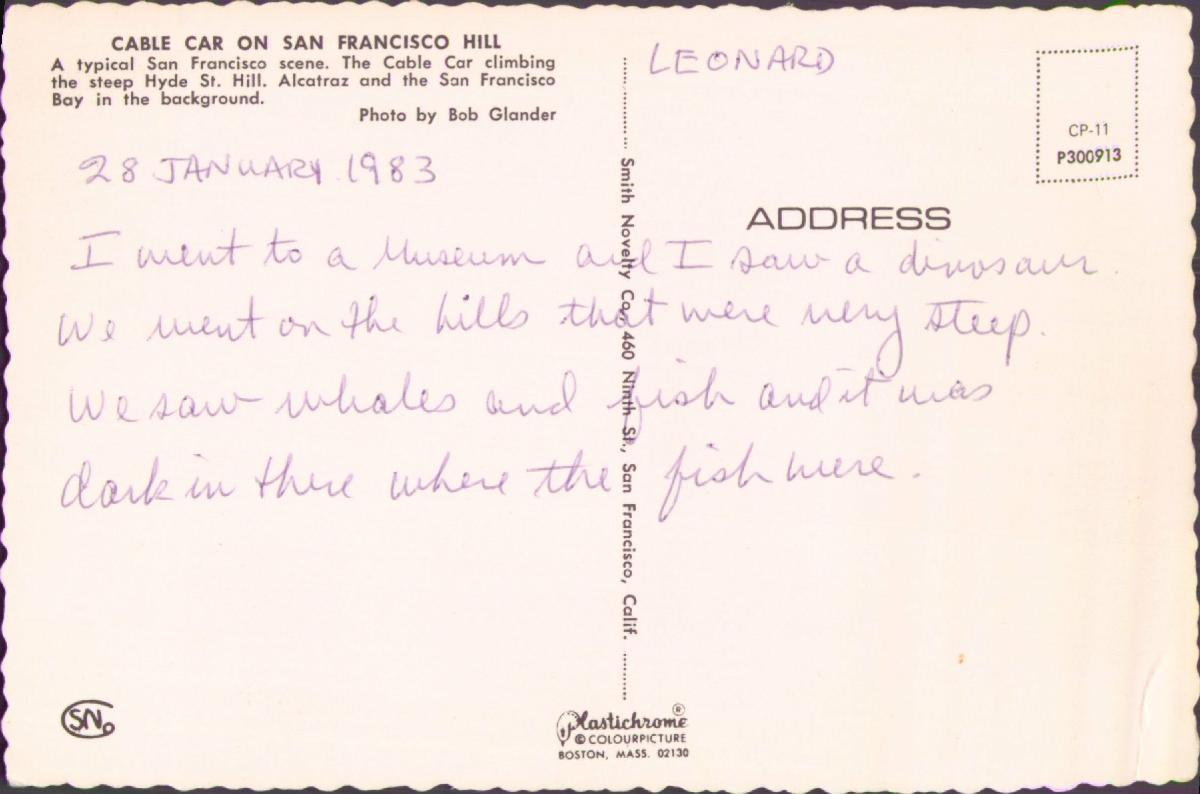 CABLE CAR ON SAN FRANCISCO HILL
A typical San Francisco scene. The Cable Car climbing
the steep Hyde St. Hill. Alcatraz and the San Francisco
Bay in the background.
Photo by Bob Glander
LEONARD
CP-11
P300913
ADDRESS
28 JANUARY 1983
I went to a Museum and I saw a dinosaur.
We went on the hills that were very steep.
We saw whales and fish and it was
dark in there where the fish were.
Smith Novelty Co., 460 Ninth St., San Francisco, Calif.
SN
Plastichrome ®
© COLOURPICTURE
BOSTON, MASS. 02130